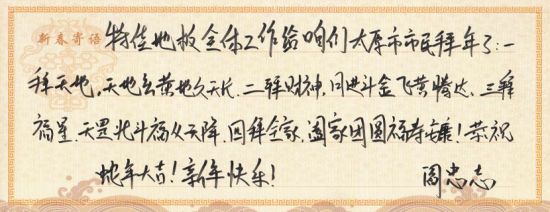 新春寄语
特佳地板全体工作给咱们太原市市民拜年了:一
拜天地,天地玄黄地久天长.二拜财神,日进斗金飞黄腾达.三拜
福星.天罡北斗福从天降.四拜全家,阖家团圆福寿安康!恭祝
蛇年大吉!新年快乐!
阎忠志